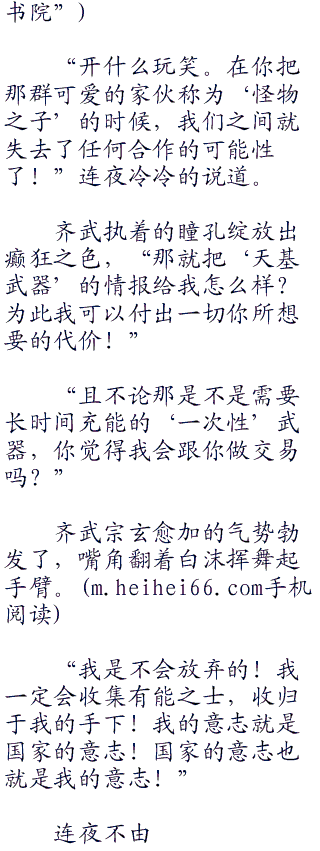 书院”)
“开什么玩笑。在你把
那群可爱的家伙称为‘怪物
之子’的时候，我们之间就
失去了任何合作的可能性
了！”连夜冷冷的说道。
齐武执着的瞳孔绽放出
癫狂之色，“那就把‘天基
武器’的情报给我怎么样？
为此我可以付出一切你所想
要的代价！”
“且不论那是不是需要
长时间充能的‘一次性’武
器，你觉得我会跟你做交易
吗？”
齐武宗玄愈加的气势勃
发了，嘴角翻着白沫挥舞起
手臂。(m.heihei66.com手机
阅读)
“我是不会放弃的！我
一定会收集有能之士，收归
于我的手下！我的意志就是
国家的意志！国家的意志也
就是我的意志！”
连夜不由